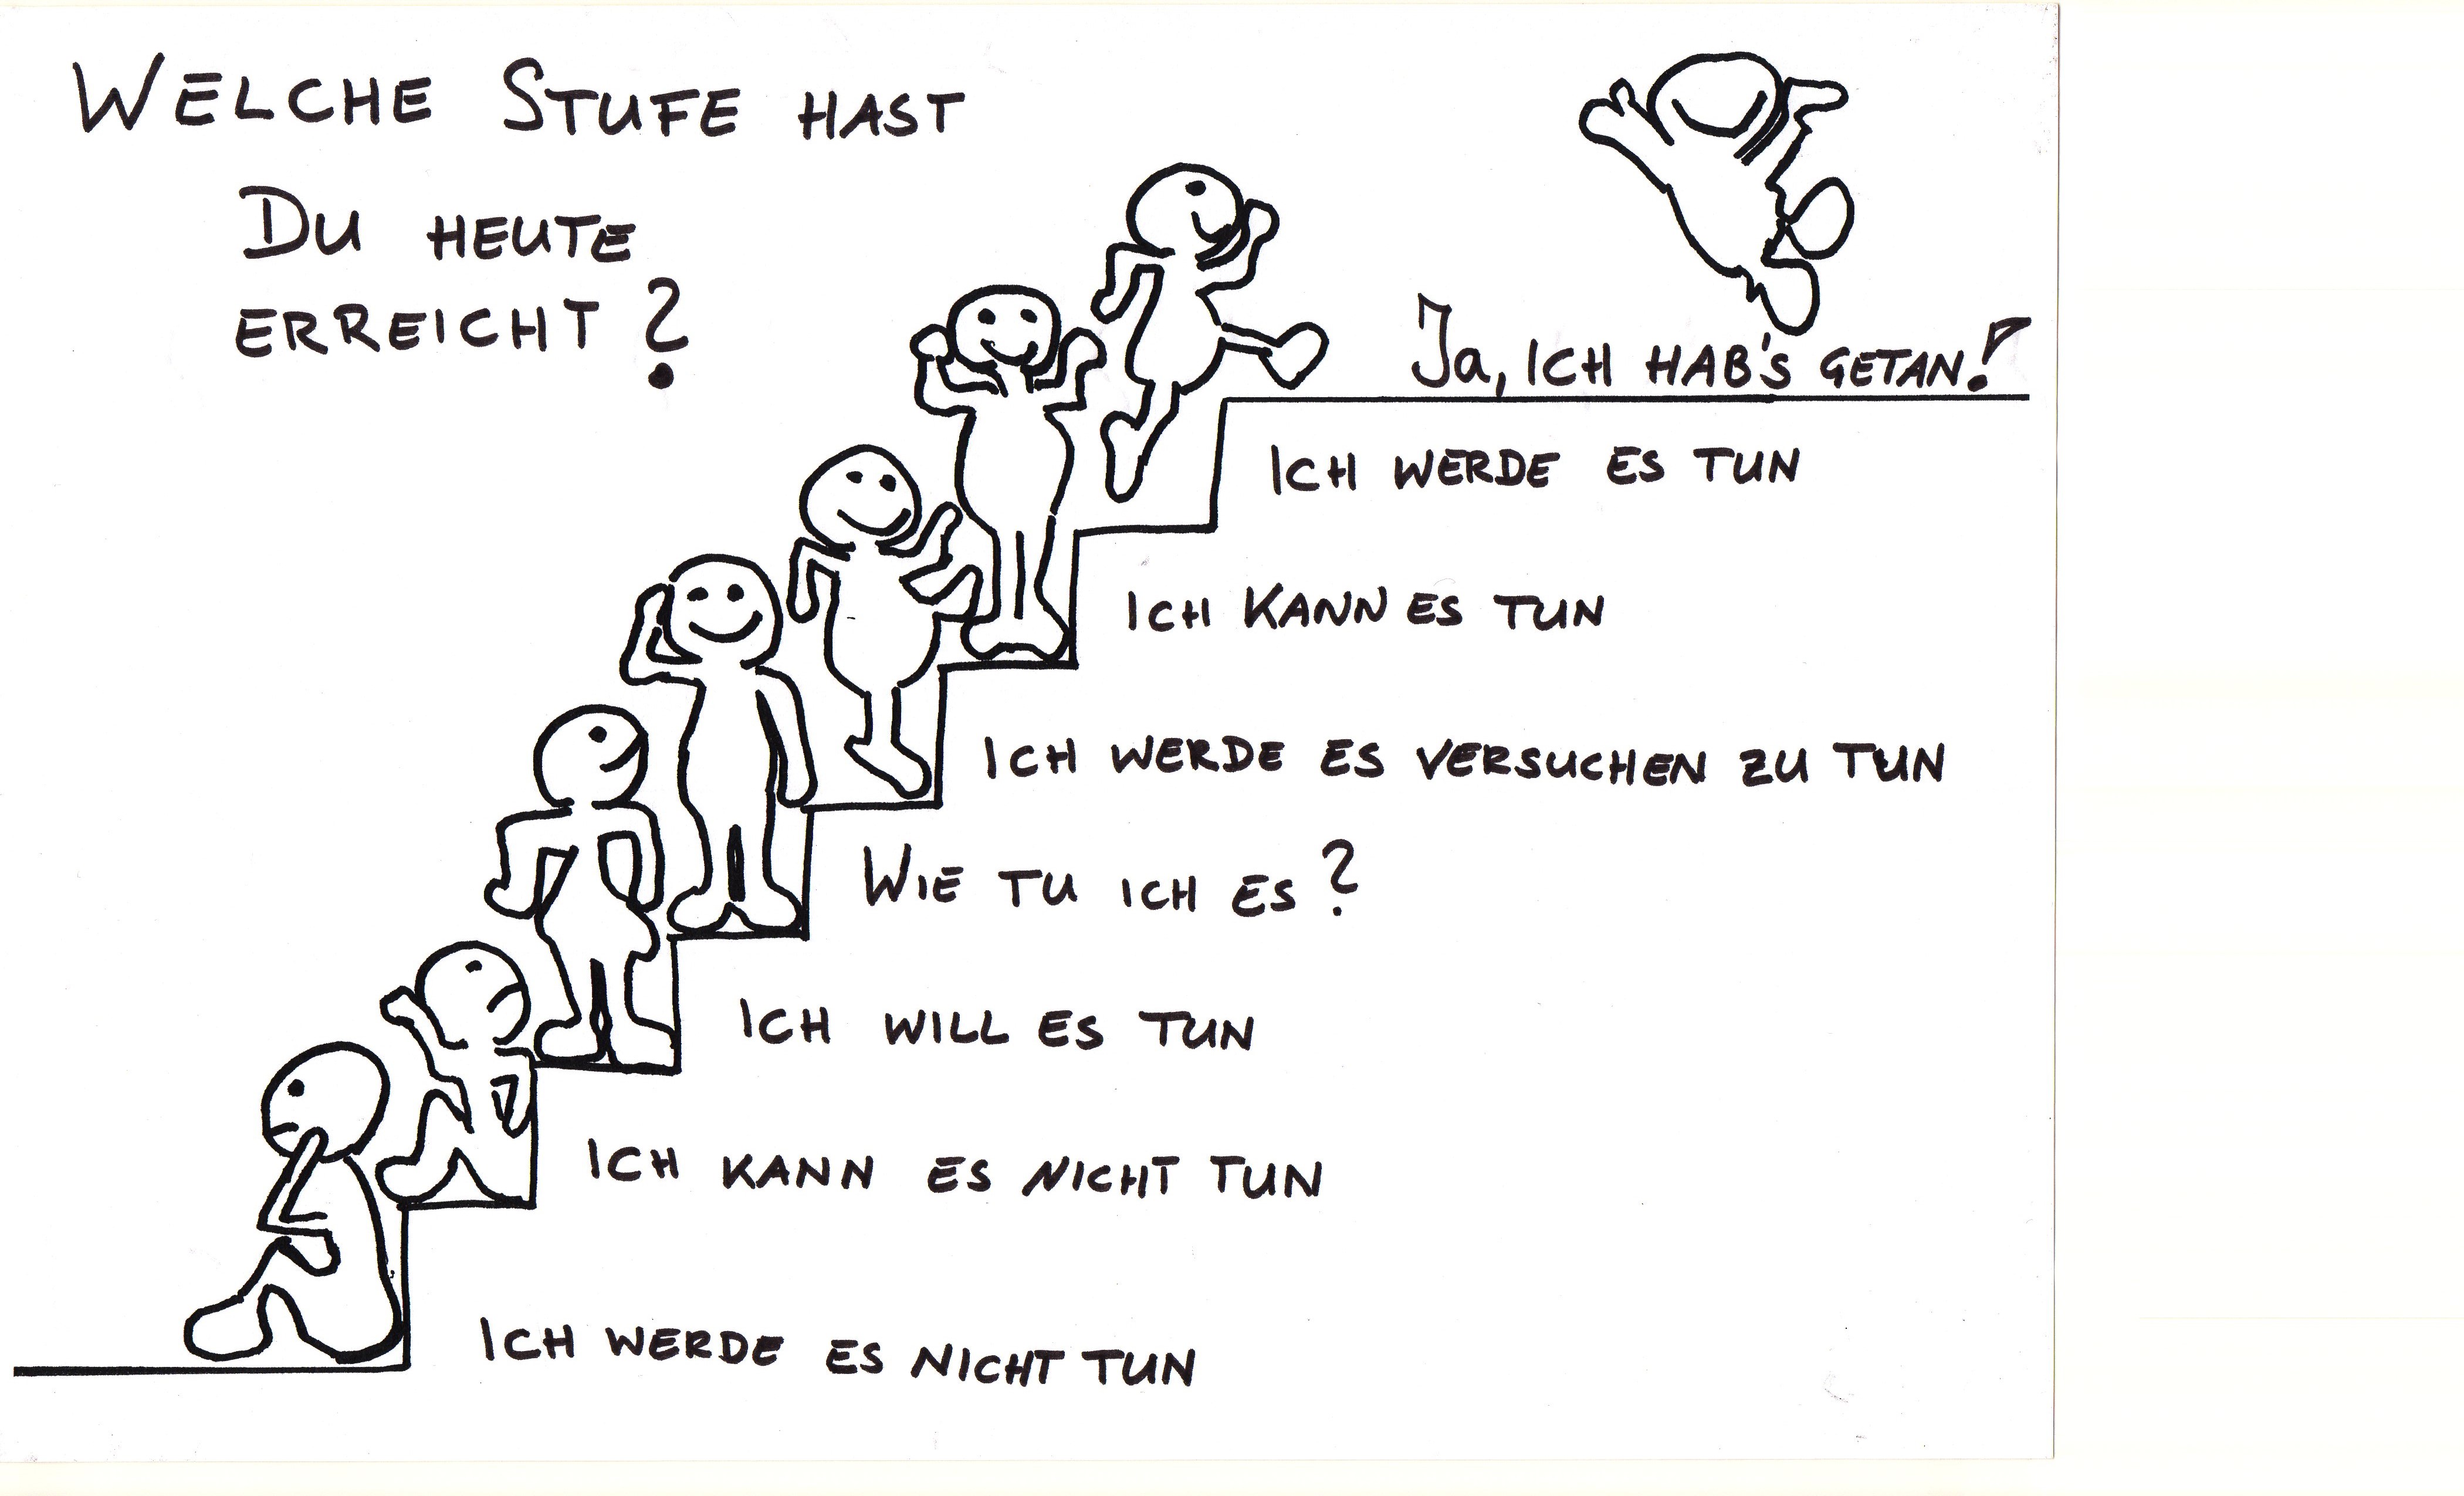 WELCHE STUFE HAST
DU HEUTE
ERREICHT?
Ja, ICH HAB'S GETAN!
ICH WERDE ES TUN
ICH KANN ES TUN
ICH WERDE ES VERSUCHEN ZU TUN
WIE TU ICH ES?
ICH WILL ES TUN
ICH KANN ES NICHT TUN
ICH WERDE ES NICHT TUN